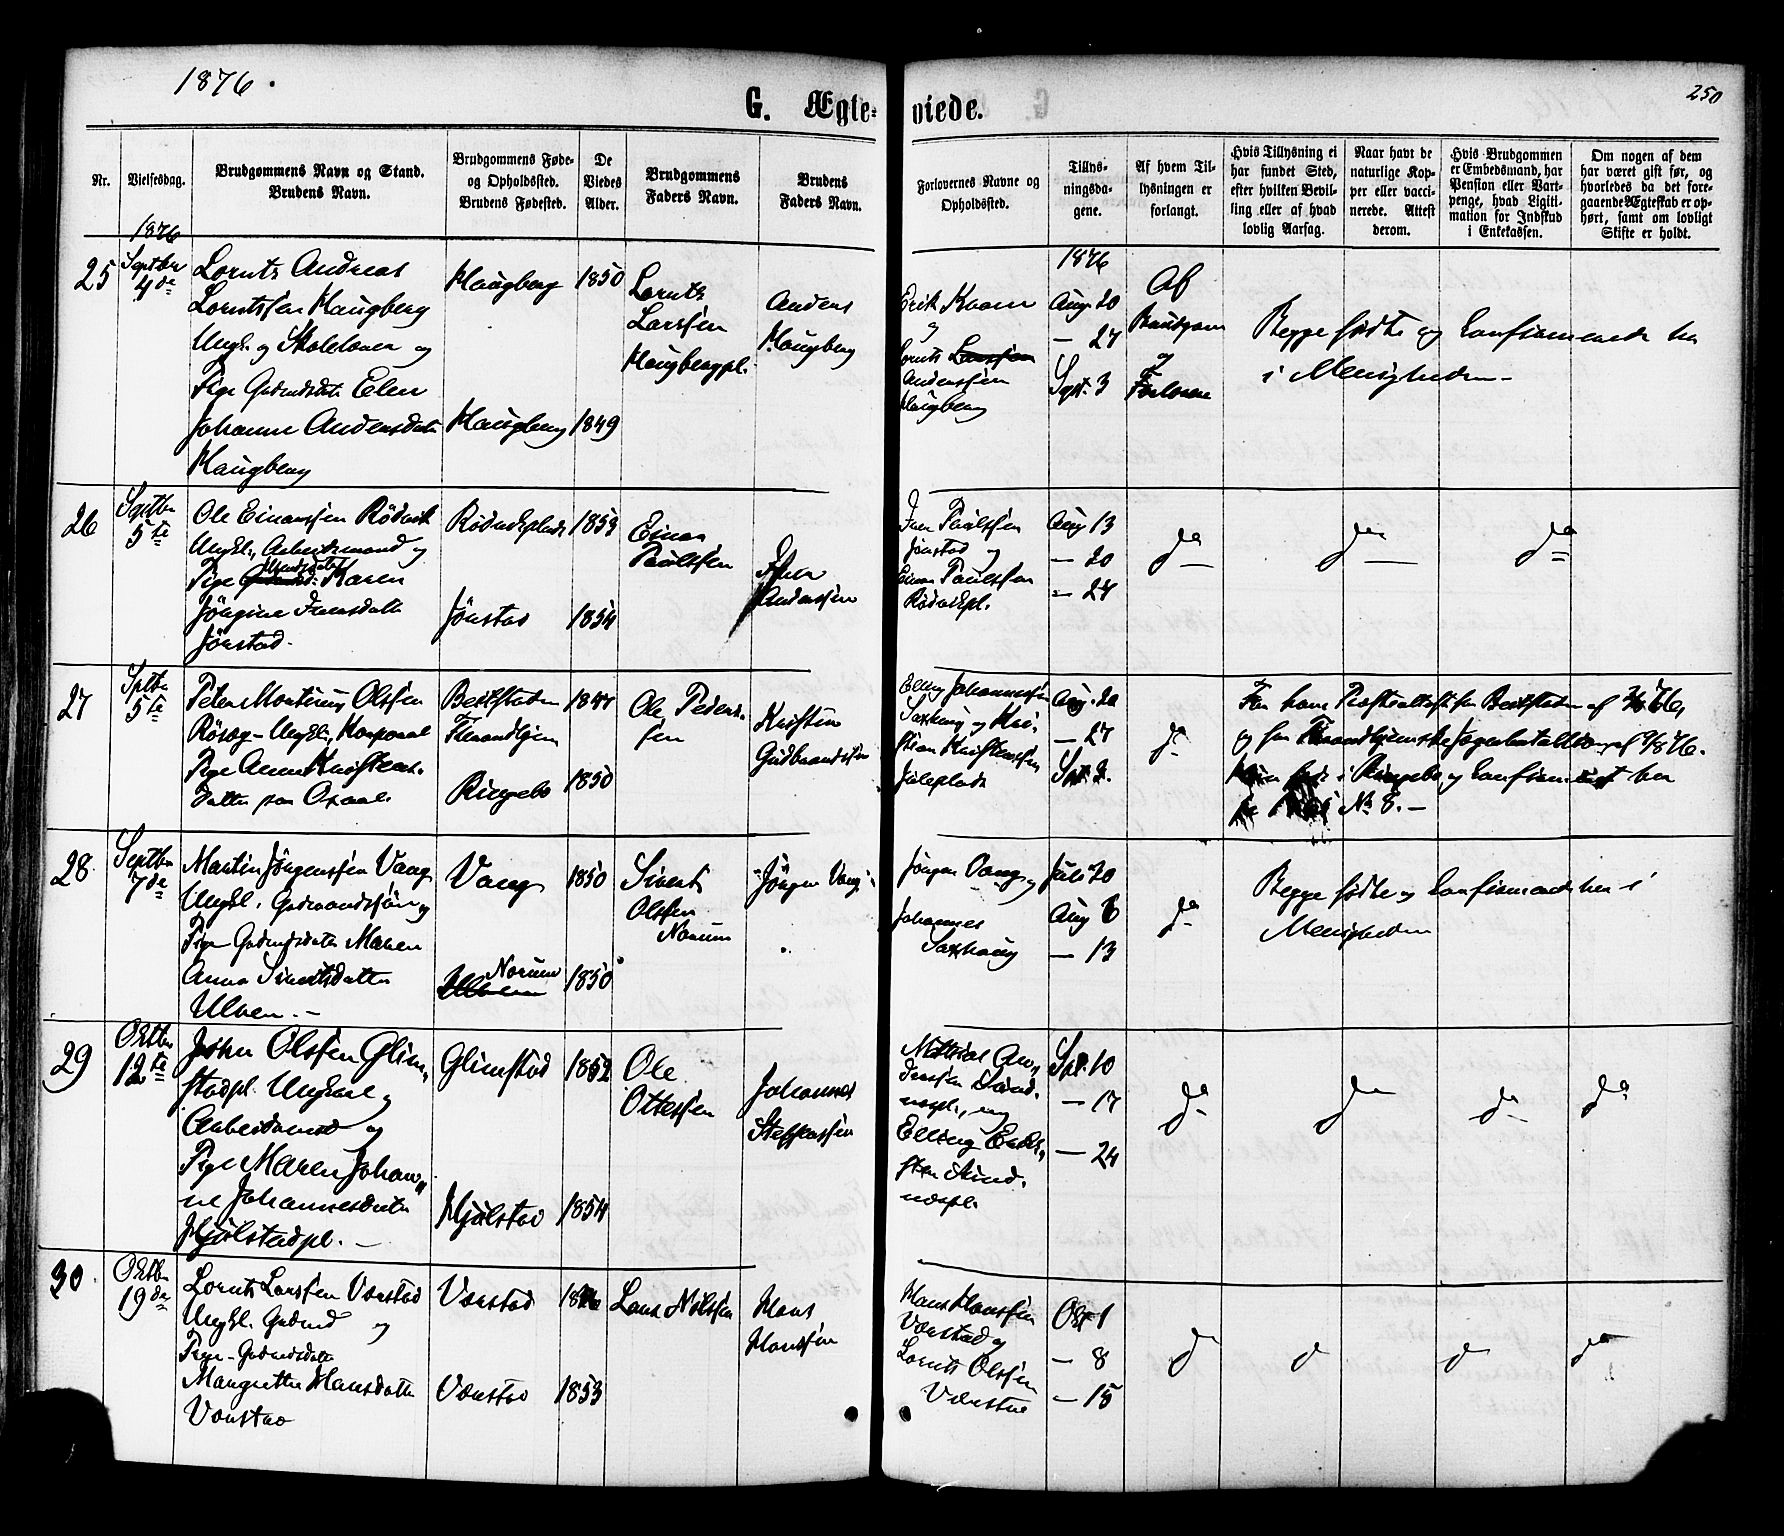 1876.
250
G. Ægte-
viede.
Nr.
Vielsesdag.
Brudgommens Navn og Stand.
Brudens Navn.
Brudgommens Føde-
og Opholdssted.
Brudens Fødested.
De
Viedes
Alder.
Brudgommens
Faders Navn.
Brudens
Faders Navn.
Forlovernes Navne og
Opholdssted.
Tillys-
ningsda-
gene.
Af hvem Til-
lysningen er
forlangt.
Hvis Tillysning ei
har fundet Sted,
efter hvilken Bevil-
ling eller af hvad
lovlig Aarsag.
Naar havt de
naturlige Kop-
per eller vacci-
nerede. Attest
derom.
Hvis Brudgommen
er Embedsmand, har
Pension eller Vart-
penge, hvad Ligiti-
mation for Indskud
i Enkekassen.
Om nogen af dem
har været gift før, og
hvorledes da det fore-
gaaende Ægteskab er op-
hørt, samt om lovligt
Skifte er holdt.
1876
25
Septber
4de
Lornts Andreas
Lorntssen Haugberg
Ungk. og Skolelærer og
Pige Gdmdsdatr Elen
Johanne Andersdatr
Haugberg
Haugberg
Haugberg
1850
1849
Lornts
Larssen
Haugbergpl.
Anders
Haugberg
Erik Kvam
og
Lornts Larssen
Anderssen
Haugberg
1876
Aug. 20
— 27
Sept. 3
Af
Brudgom
og
Forlovere
Begge fødte og konfirmerede her
i Menigheden
26
Septbr
5te
Ole Einarssen Rødsek
Ungkl., Arbeidsmand og
Pige Karen
Jørgine Iversdatter
Jørstad.
Jørstad
1853
1854
Einar
Paulssen
Iver
Anderssen
Iver Paulssen
Jørstad og
Einar Paulssen
Aug 13
— 20
— 27
do
do
do
27
Sptbr
5te
Peter Martinus Olssen
Røsæg - Ungkl., Korporal
Pige Anne Kristens-
datter paa
Beitstaden
Ringebo
1847
1850
Ole Peders-
sen
Kristen
Gudbrandssen
Elling Johannessen
Saxhaug og Kri-
stian Kristenssen
Aug. 20
— 27
Spt. 3.
do
og konfirmeret her
No 8. —
28
Septbr
7de
Martin Jørgenssen Vang
Ungkl. Gdmandssøn og
Pige Gdmdsdatr Maren
Anna Sivertsdatter
Ulven. —
Vang
Norum
1850
1850
Sivert
Olssen
Norum
Jørgen Vang
Jørgen Vang og
Johannes
Saxhaug
Juli 30
Aug 6
— 13
do
Begge fødte og konfirmerede her i
Menigheden
29
Oktbr
12te
John Olssen Glim-
stadpl. Ungkarl og
Arbeidsmd og
Pige Maren Johan-
ne Johannesdatr
Hjølstadpl. —
Glimstad
Hjølstad
1852
1854
Ole
Ottessen
Johannes
Steffenssen
Mathias An-
derssen Sund-
nespl., og
Elling Erik-
ssen Sund-
nespl.
Spt. 10
— 17
— 24
do
do
do
do
30
Oktbr
19de
Lornts Larssen Værstad
Ungkl. Gdmd og
Pige - Gdmdsdatr
Margrethe Hansdatter
Værstad
Værstad
Værstad
1853
Lars Nilssen
Hans
Hanssen
Hans Hanssen
Værstad og
Lornts Olssen
Værstad
Okt 1
— 8
— 15
do
do
do
do